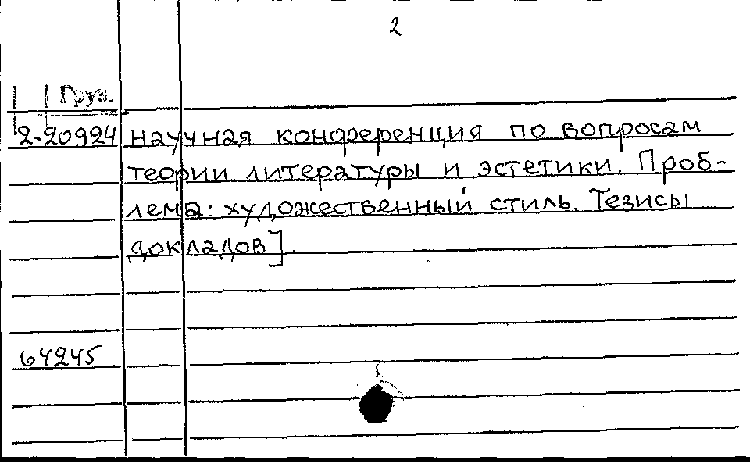 2
Груз.
2-20924 научная конференция по вопросам
теории литературы и эстетики. Проб-
лема: художественный стиль. Тезисы
докладов]
64245